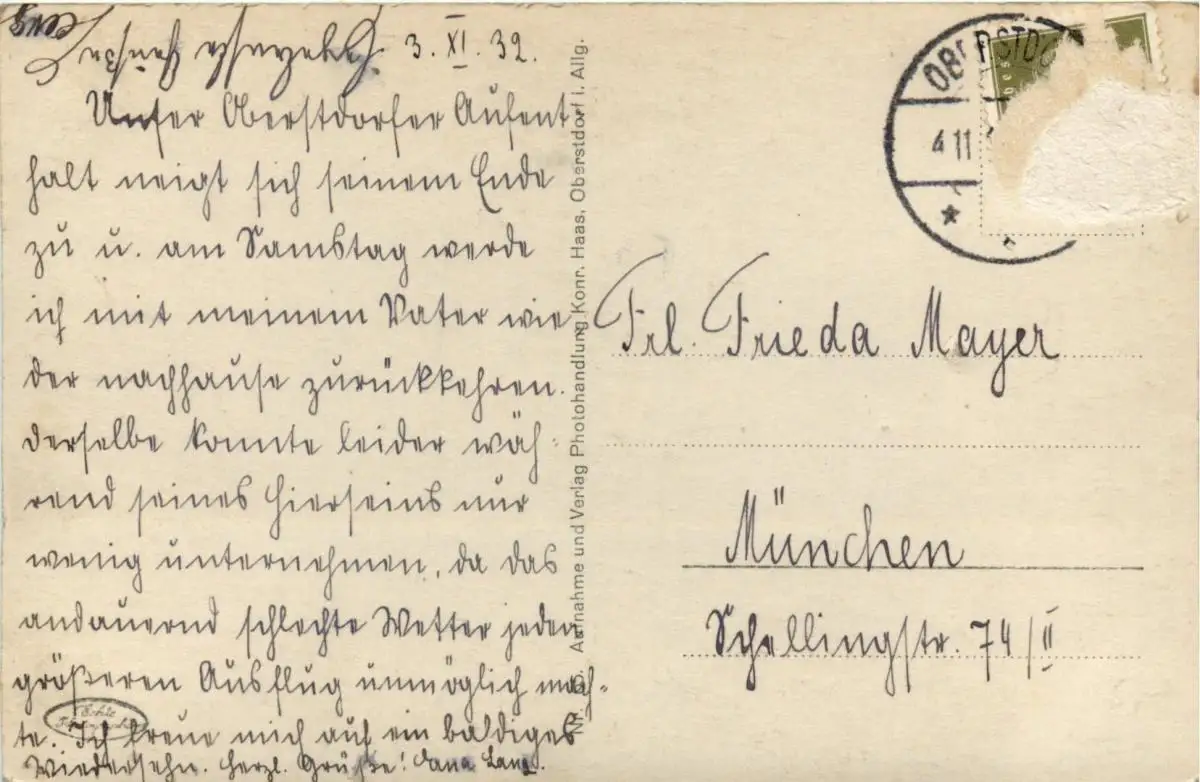 3. XI. 32.
Unser Oberstdorfer Aufent-
halt neigt sich seinem Ende
zu u. am Samstag werde
ich mit meinem Vater wie
der nachhause zurückkehren.
Derselbe konnte leider wäh-
rend seines Hierseins nur
wenig unternehmen, da das
andauernd schlechte Wetter jeden
größeren Ausflug unmöglich mach-
te. Ich freue mich auf ein baldiges
Wiedersehn. Herzl. Grüße!
Nr. Aufnahme und Verlag Photohandlung Konr. Haas, Oberstdorf i. Allg.
4 11
Frl. Frieda Mayer
München
Schellingstr. 74/II